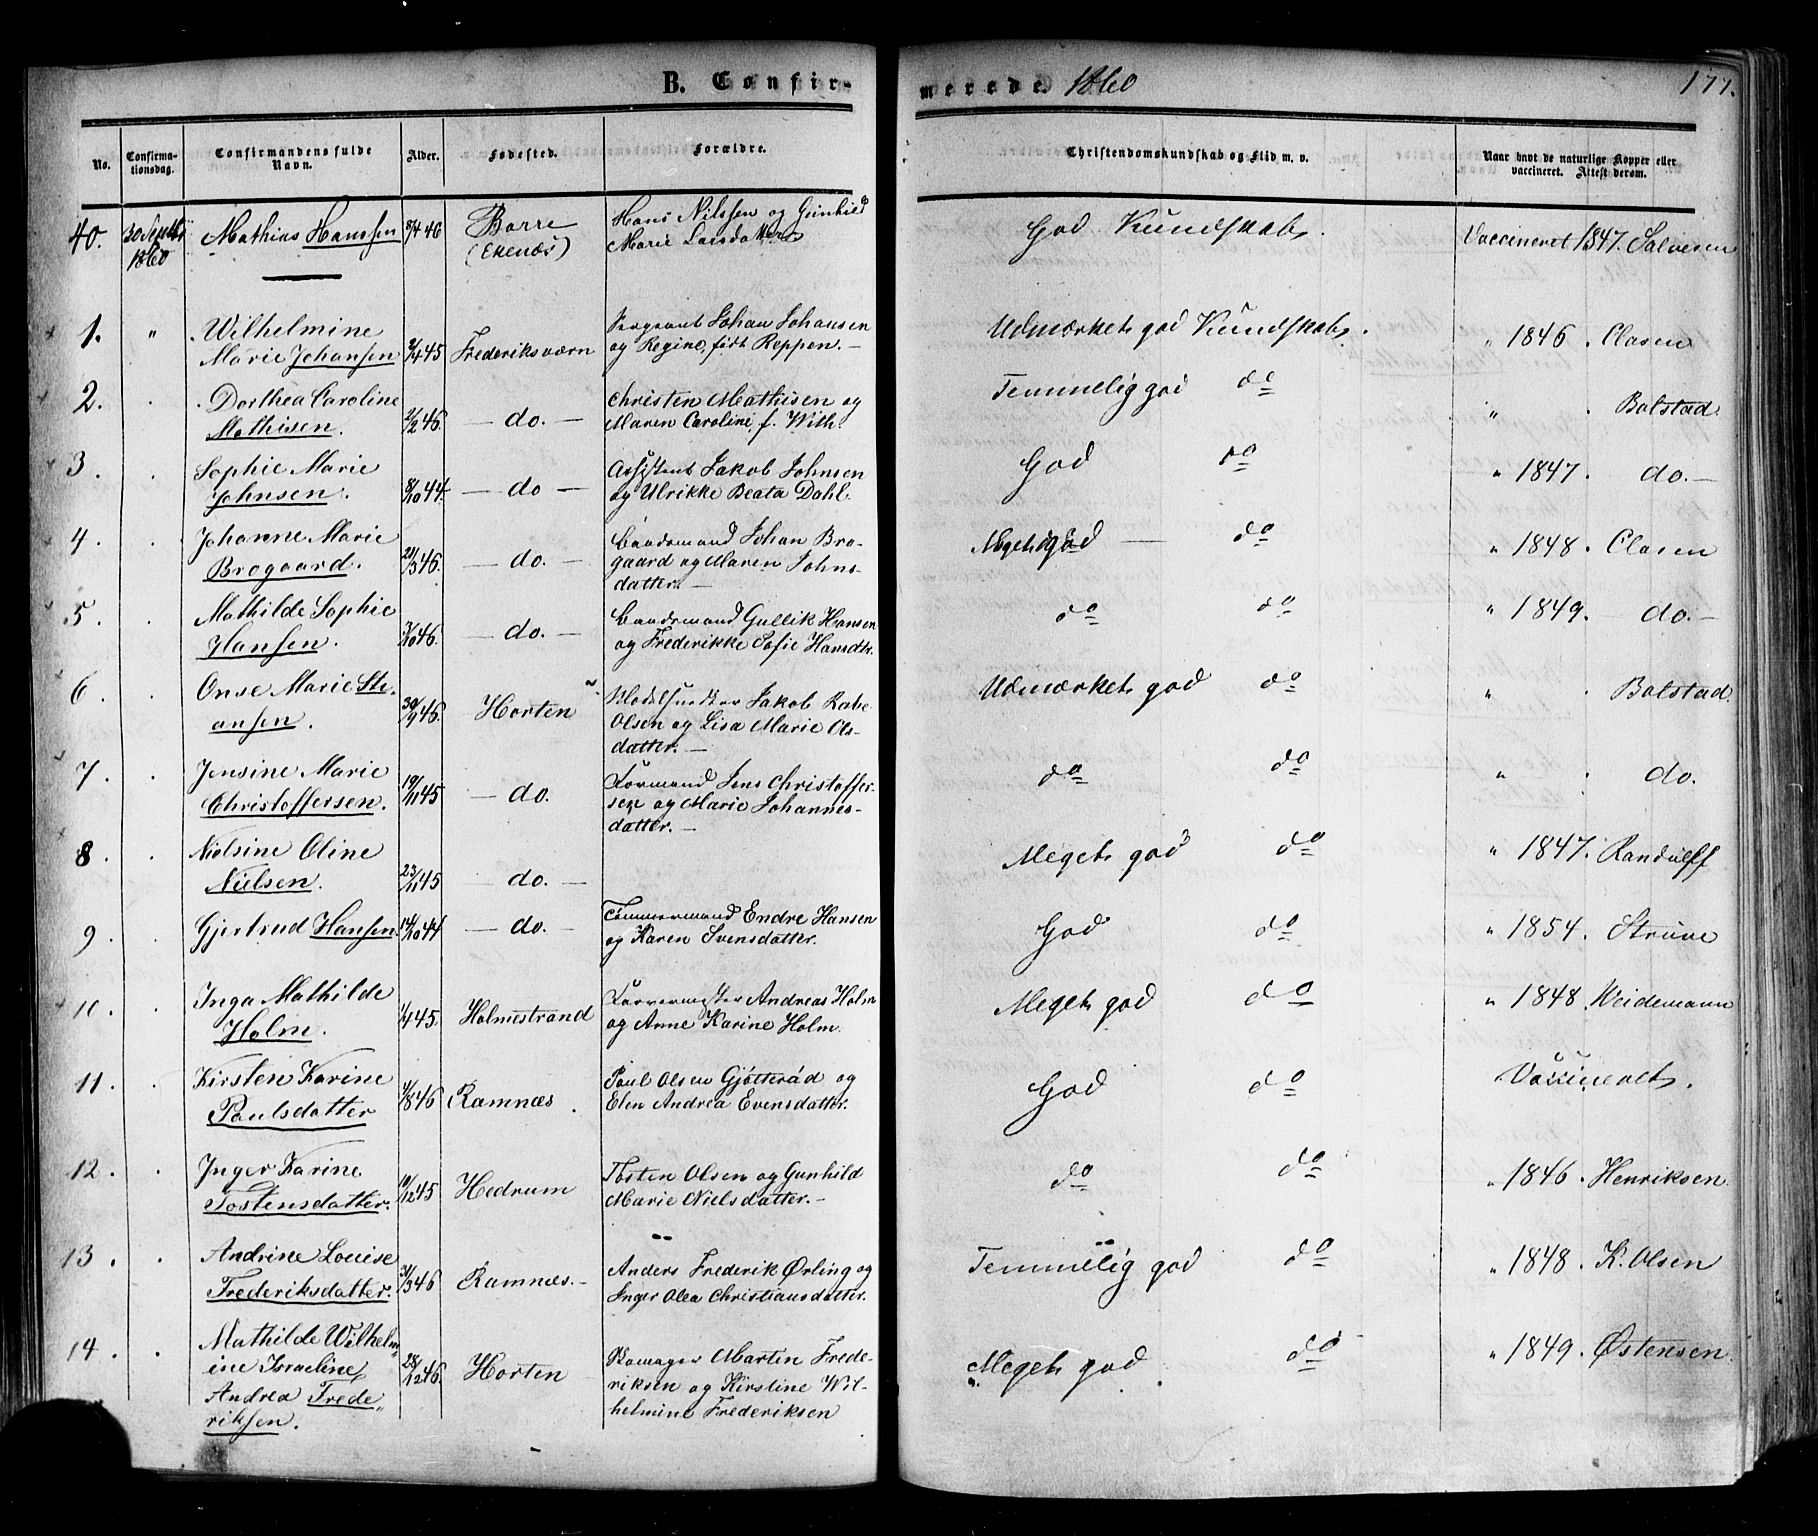 B. Confir-
merede. 1860
177.
No.
Confirma-
tionsdag.
Confirmandens fulde
Navn.
Alder.
Fødested.
Forældre.
Christendomskundskab og Flid m. v.
Naar havt de naturlige Kopper eller
vaccineret. Attest derom.
40. 30 Septbr Mathias Hanssen 40 Borre Hans Nilssen og Gunhild
1860 (Ekenæs) Marie Larsdatter
God Kundskab. Vaccineret 1847. Salvesen
1. " Wilhelmine Sergeant Johan Johansen
Marie Johansen 2/4 45 Frederiksværn og Regine, født Reppen. —
Udmærket god Kundskab. " 1846. Clasen
2. Dorthea Caroline Christen Mathisen og
Mathisen. 2/2 46. — do. — Maren Caroline, f. With.
Temmelig god do " . Bolstad
3 . Sophie Marie Assistent Jakob Johnsen
Johnsen. 8/10 44. — do — og Ulrikke Beata Dahl.
God do " 1847. do. —
4 . Johanne Marie Baadsmand Johan Bro-
Brogaard. 21/3 46. — do. — gaard og Maren Johns-
datter. —
Meget god — do " 1848. Clasen
5 . Mathilde Sophie Baadsmand Gullik Hansen
Hansen. 46. — do. — og Frederikke Sofie Hansdtr.
do do " 1849. — do. —
6 . Onse Marie Ste-
ansen. 30/9 45. Horten Jakob Rabe
Olsen og Lisa Marie Ols-
datter. —
Udmærket god do " . Bolstad.
7 . Jensine Marie Formand Jens Christoffer-
Christoffersen. 19/11 45 — do. sen og Marie Johannes-
datter. —
do do " . do.
8 . Nielsine Oline
Nielsen. 23/11 45 — do. —
Meget god do " 1847. Randulff
9 . Gjertrud Hansen. 14/10 44 — do. — Tømmermand Endre Hansen
og Karen Svensdatter.
God do " 1854. Strüve
10 . Inga Mathilde Farvermester Andreas Holm
Holm. 1/4 45. Holmestrand og Anne Karine Holm.
Meget god do " 1848. Weidemann
11 . Kirsten Karine Paul Olsen Gjøtterød og
Paulsdatter 4/8 46 Ramnæs . Elen Andrea Evensdatter.
God do Vaccineret.
12 . Inger Karine Tosten Olsen og Gunhild
Tostensdatter. 10/12 45 Hedrum Marie Nielsdatter. —
do do " 1846. Henriksen
13 . Andrine Louise Anders Frederik Ørling og
Frederiksdatter. 31/3 46 Ramnæs. — Inger Olea Christiansdatter.
Temmelig god do " 1848. K. Olsen
14 . Mathilde Wilhelm-
ine Israeline 28/12 46. Horten Skomager Martin Frede-
Andrea Frede- riksen og Kirstine Wil-
riksen. helmine Frederiksen
Meget god . do " 1849. Østensen.